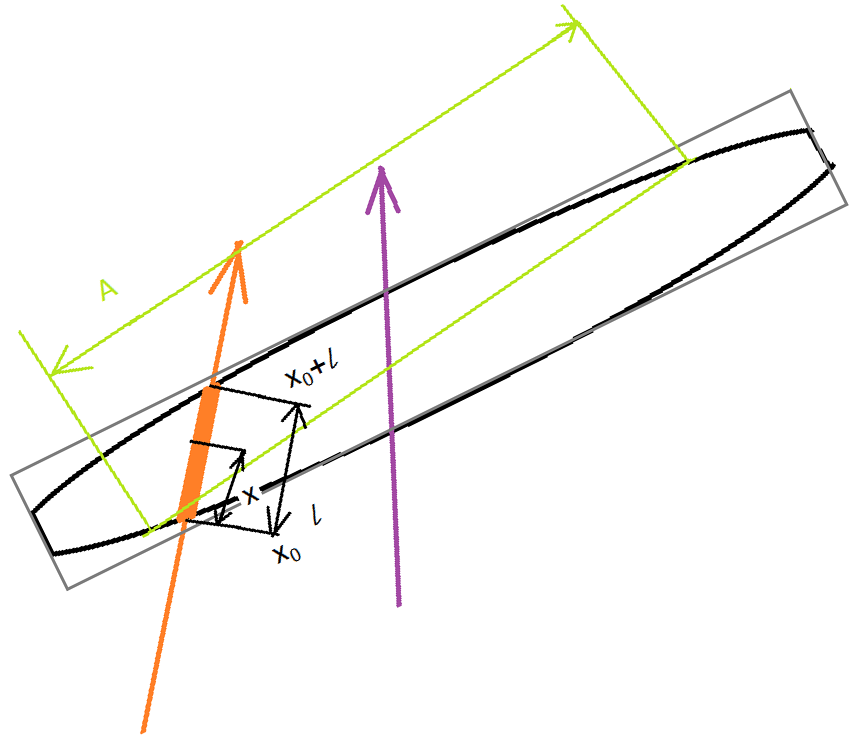 A
x₀+l
x
l
x₀